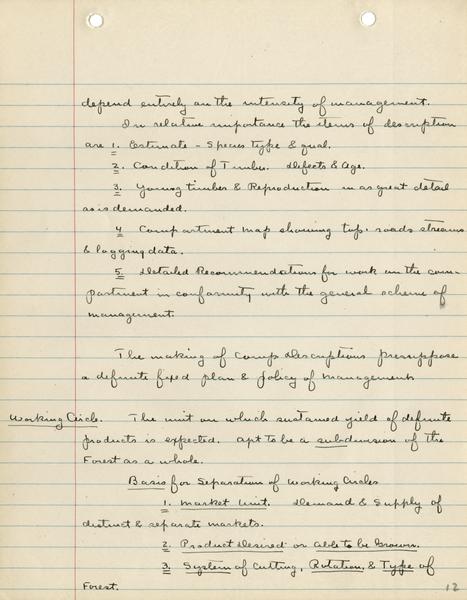 depend entirely on the intensity of management.
In relative importance the items of description
are 1. Estimate - Species type & qual.
2. Condition of Timber. Defects & Age.
3. Young timber & Reproduction in as great detail
as is demanded.
4 Compartment map showing top. roads streams
& logging data.
5 Detailed Recommendations for work on the com-
partment in conformity with the general scheme of
management
The making of Comp Descriptions presuppose
a definite fixed plan & policy of management
Working Circle. The unit on which sustained yield of definite
products is expected. apt to be a subdivision of the
Forest as a whole.
Basis for Separation of Working Circles
1. Market Unit. Demand & Supply of
distinct & separate markets.
2. Product Desired or able to be Grown.
3. System of Cutting, Rotation, & Type of
Forest.
12